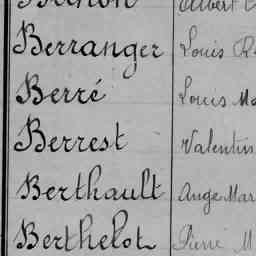 Albert
Berranger Louis
Berré Louis
Berrest Valentin
Berthault Ange Mar
Berthelot Pierre M